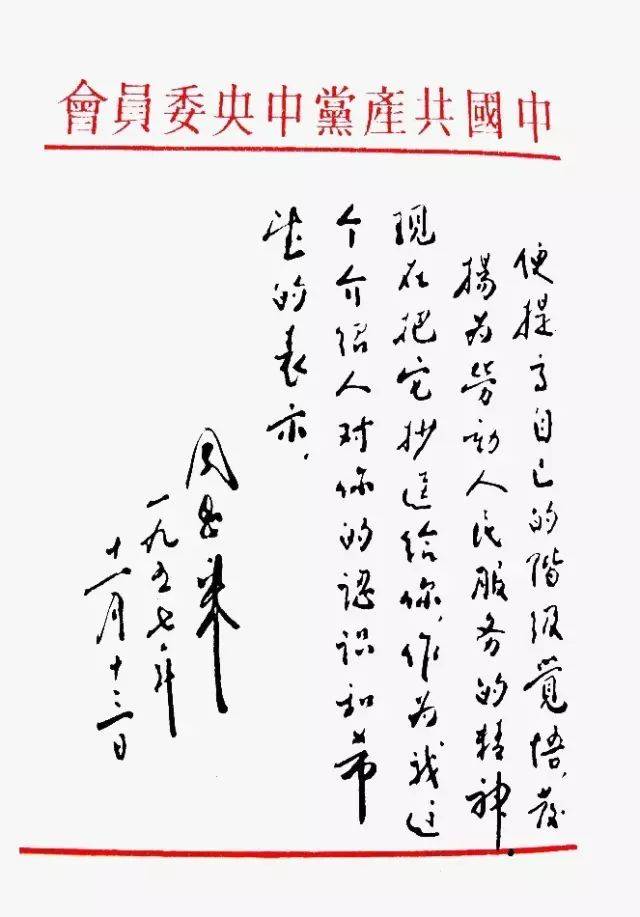 中國共產黨中央委員會
便提高自己的階级覺悟，發
揚为勞动人民服务的精神。
现在把它抄送给你，作为我这
个介绍人对你的認识和希
望的表示，
周恩来
一九五七年
十一月十三日